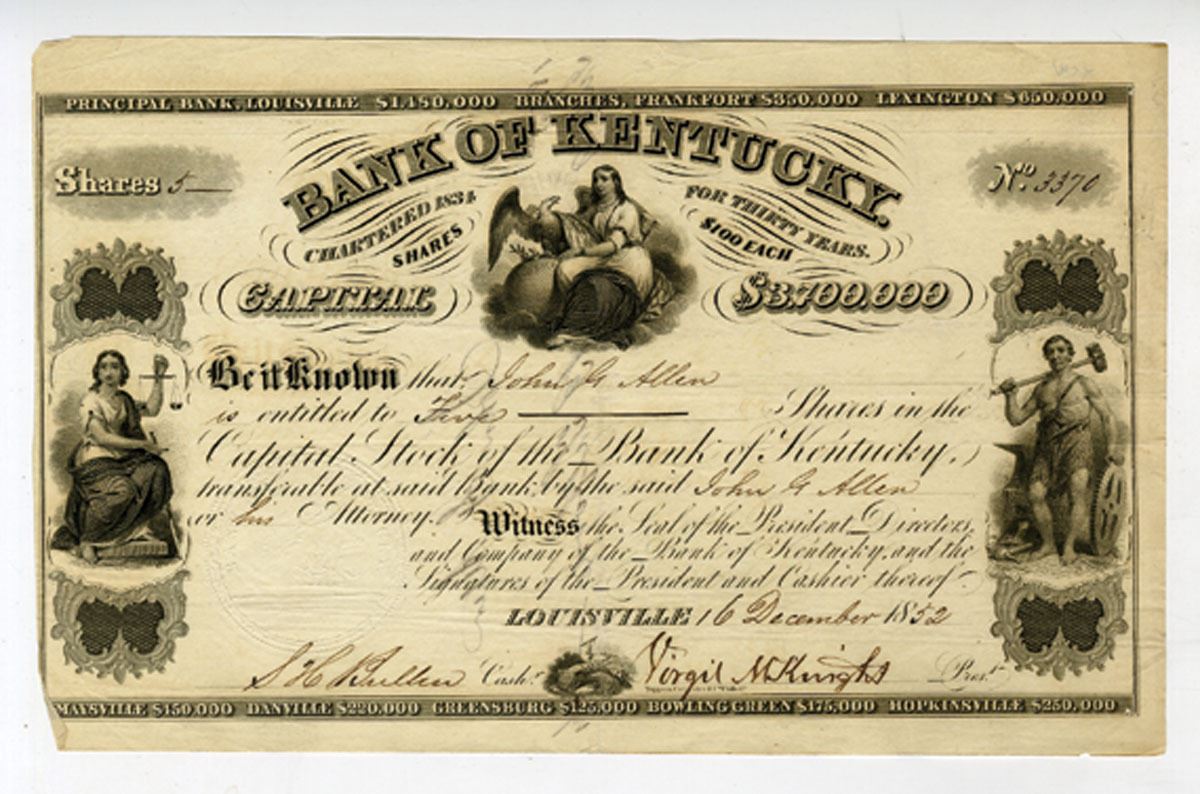 PRINCIPAL BANK, LOUISVILLE $1,780,000 BRANCHES, FRANKFORT $350,000 LEXINGTON $650,000
BANK OF KENTUCKY.
Shares 5
No. 3370
CHARTERED 1834 FOR THIRTY YEARS.
SHARES $100 EACH
CAPITAL $3,700,000
Be it Known that John G Allen
is entitled to Five Shares in the
Capital Stock of the Bank of Kentucky,
transferable at said Bank, by the said John G Allen
or his Attorney. Witness the Seal of the President Directors,
and Company of the Bank of Kentucky, and the
Signatures of the President and Cashier thereof
LOUISVILLE 16 December 1852
S H Bullen Cashr. Virgil McKnight Prest.
MAYSVILLE $150,000 DANVILLE $220,000 GREENSBURG $125,000 BOWLING GREEN $175,000 HOPKINSVILLE $250,000